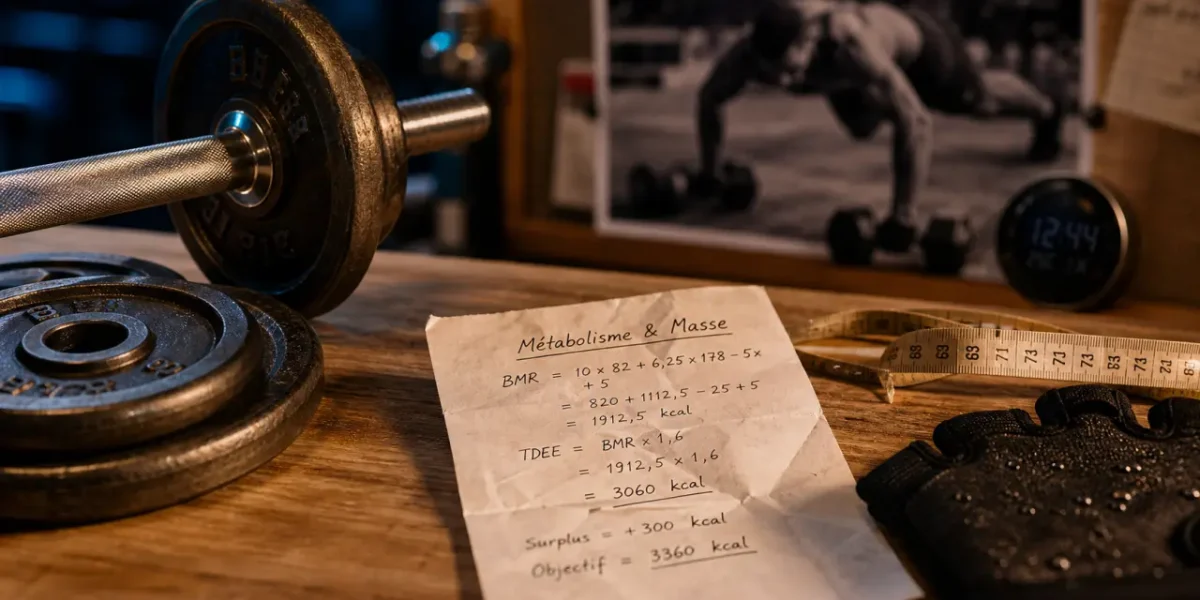 Métabolisme & Masse
BMR = 10 × 82 + 6,25 × 178 – 5×
+ 5
= 820 + 1112,5 – 25 + 5
= 1912,5 kcal
TDEE = BMR × 1,6
= 1912,5 × 1,6
= 3060 kcal
Surplus = + 300 kcal
Objectif = 3360 kcal
12:44
68 63 69 71 73 74 73 75